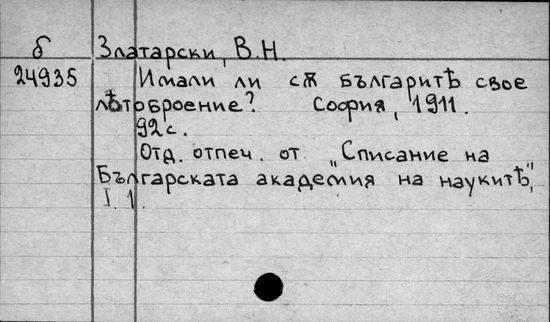 б Златарски, В.Н.
24935 Имали ли сѫ българитѣ свое
лѣтоброение? София, 1911.
92 с.
Отд. отпеч. от „Списание на
Българската академия на наукитѣ",
I. 1.